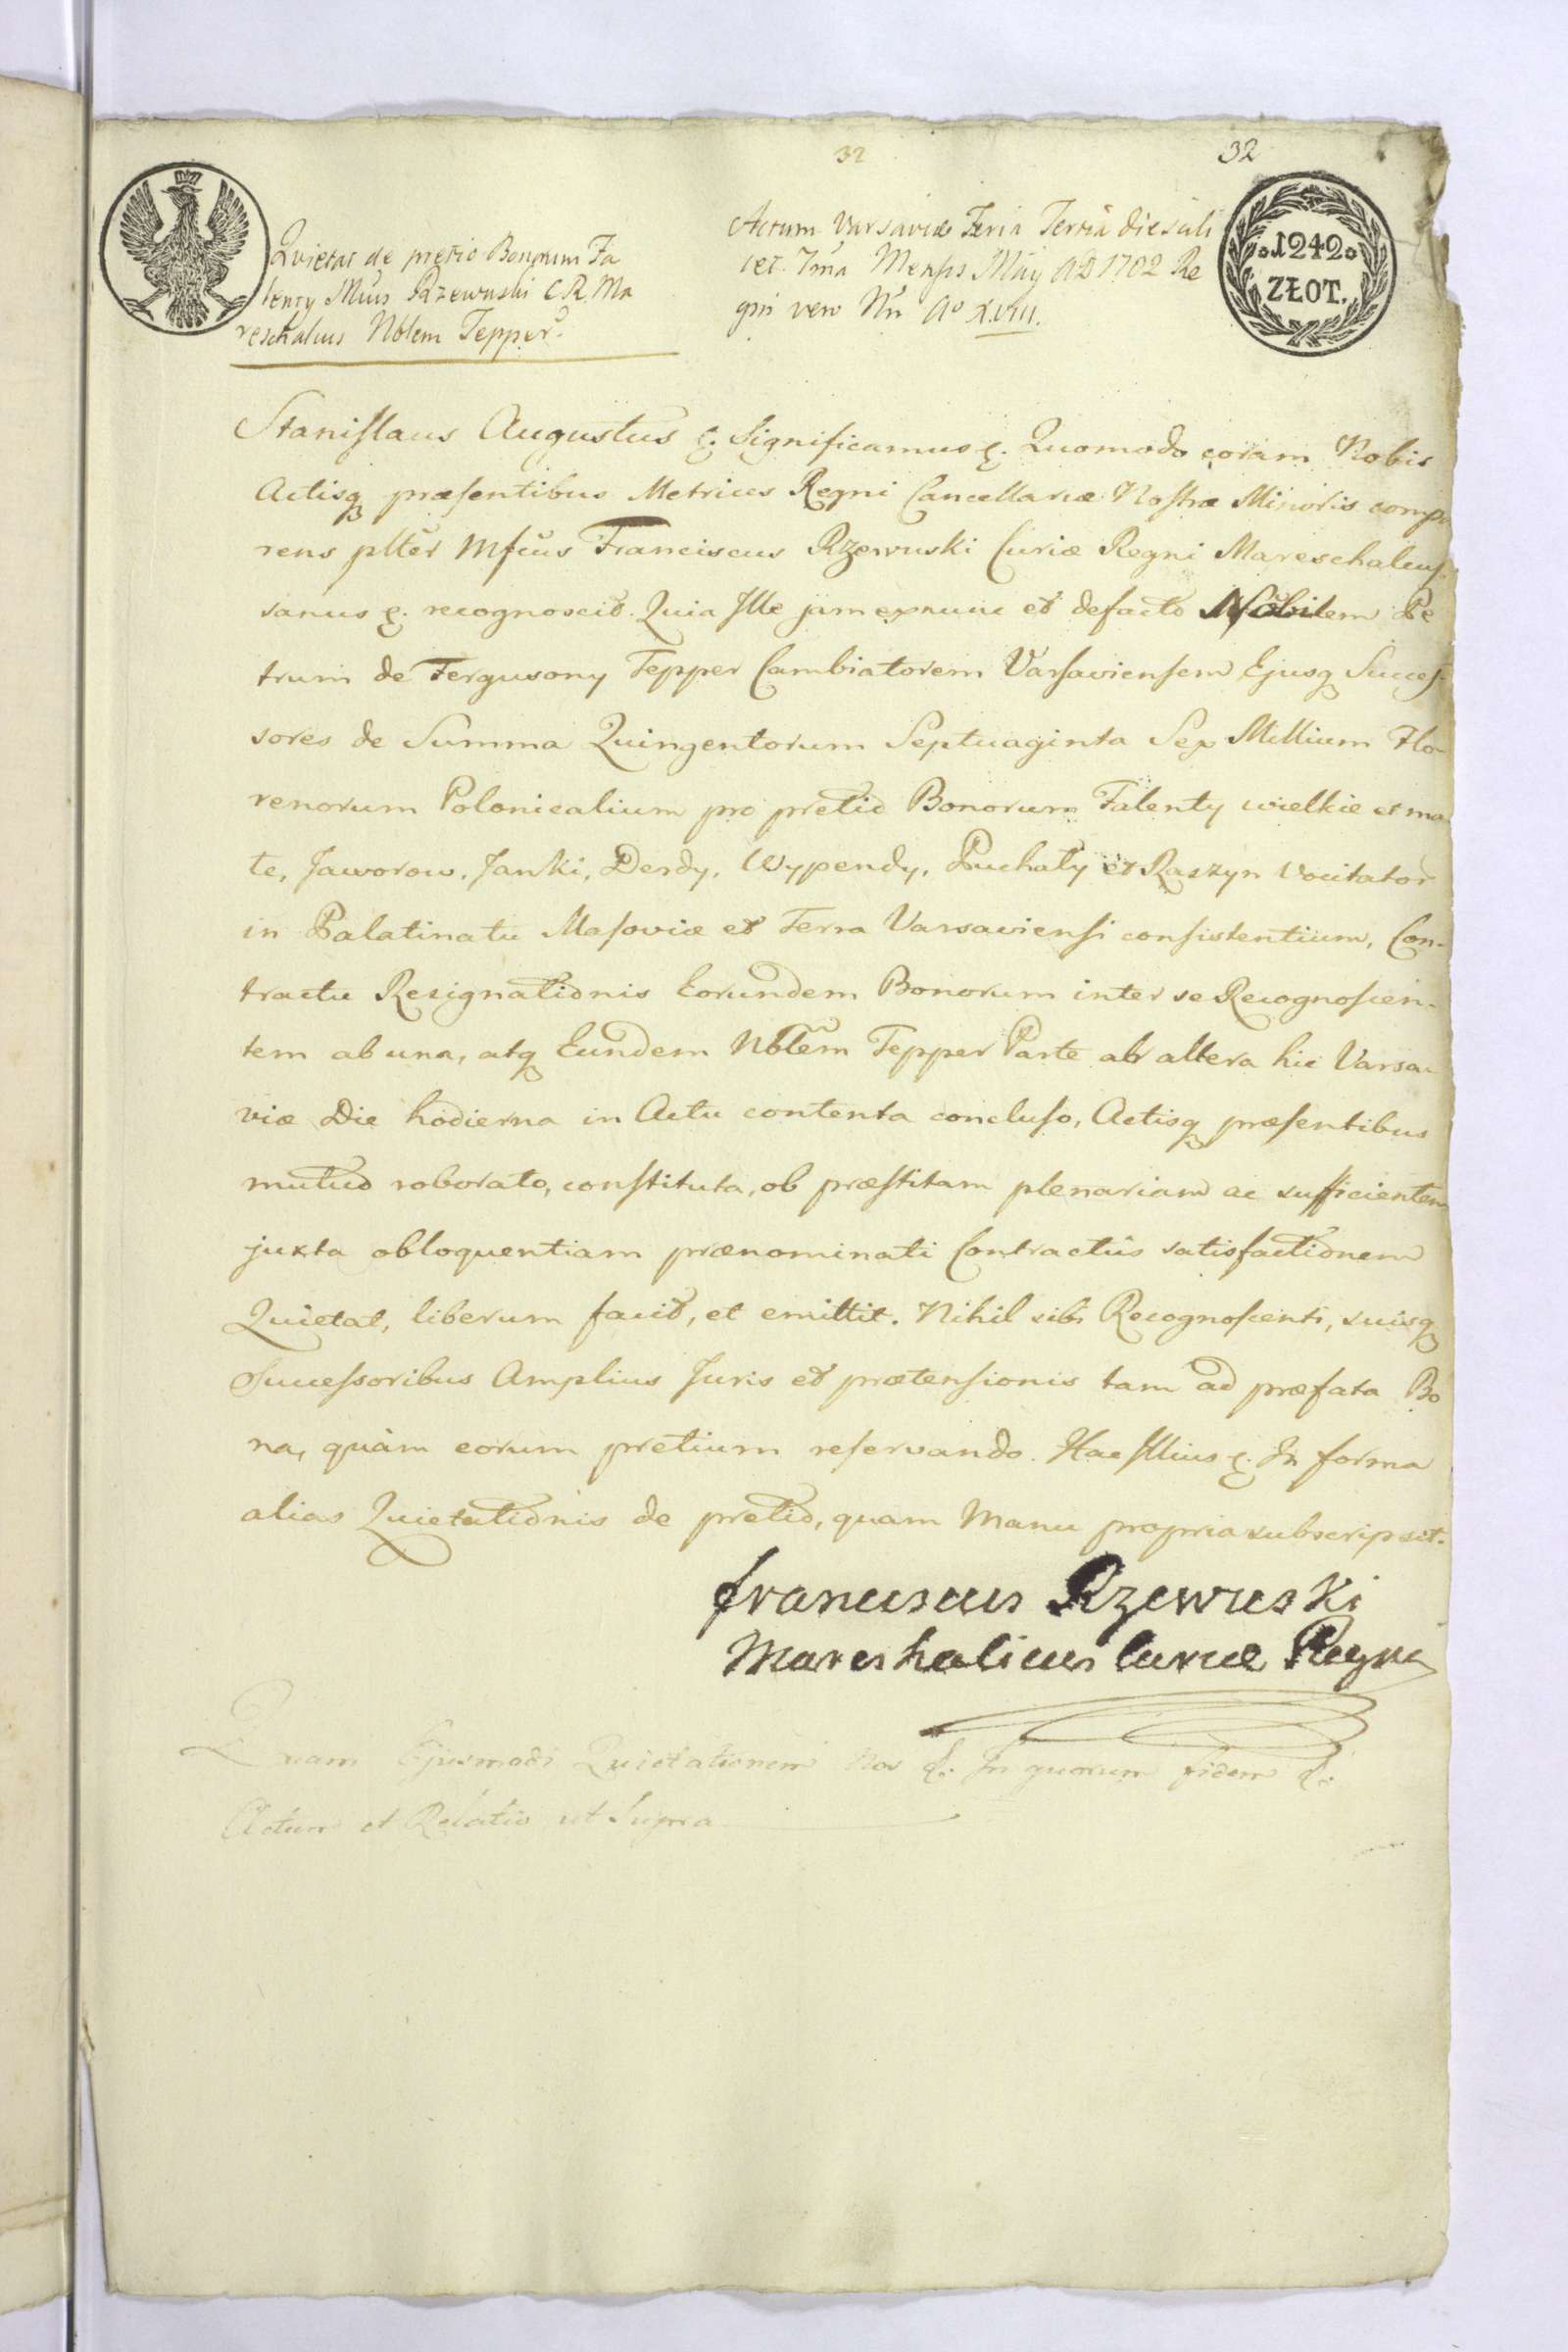 32
32
Quietat de pretio Bonorum Fa
lenty Mcus Rzewuski C R Ma
reschalcus Nblem Tepper
Actum Varsaviæ Feria Tertia die scili
cet 7ma Mensis May AD 1782 Re
gni vero Nri Ao XVIII.
.1242.
ZŁOT.
Stanislaus Augustus &. Significamus &. Quomodo coram Nobis
Actisq præsentibus Metrices Regni Cancellariæ Nostræ Minoris compa
rens plter Mfcus Franciscus Rzewuski Curiæ Regni Mareschalcus
sanus &. recognoscit. Quia Ille jam exnunc et defacto Nobilem Pe
trum de Fergusony Tepper Cambiatorem Varsaviensem Ejusq Succes
sores de Summa Quingentorum Septuaginta Sex Millium Flo-
renorum Polonicalium pro pretio Bonorum Falenty wielkie et ma
łe, Jaworow, Janki, Derdy, Wypendy, Puchały et Raszyn vocitator
in Palatinatu Masoviæ et Terra Varsaviensi consistentium, Con-
tractu Resignationis Eorundem Bonorum inter se Recognoscen-
tem ab una, atq Eundem Nblem Tepper Parte ab altera hic Varsa-
viæ Die hodierna in Actu contenta concluso, Actisq præsentibus
mutuo roborato, constituta, ob præstitam plenariam ac sufficientem
juxta obloquentiam prænominati Contractûs satisfactionem
Quietat, liberum facit, et emittit. Nihil sibi Recognoscenti, suisq
Successoribus Amplius Juris et prætensionis tam ad præfata Bo
na, quàm eorum pretium reservando. Hac Illius &. In forma
alias Quietationis de pretio, quam Manu propria subscripsit.
Franciscus Rzewuski
Mareshalicus Curiæ Regni
Quam Ejusmodi Quietationem Nos &. In quorum fidem &.
Actum et Relatio ut Supra